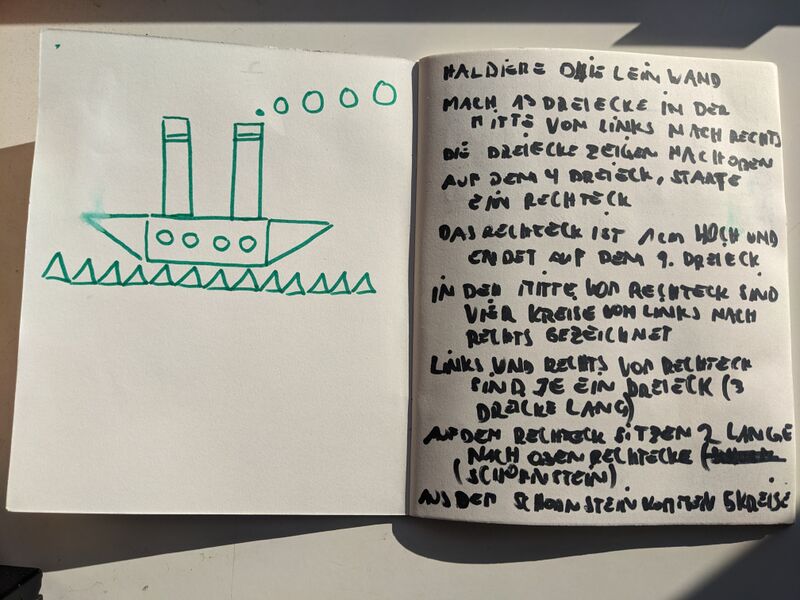 HALDIERE DIE LEINWAND
MACH 13 DREIECKE IN DER
MITTE VON LINKS NACH RECHTS
DIE DREIECKE ZEIGEN NACH OBEN
AUF DEM 4 DREIECK, STARTE
EIN RECHTECK
DAS RECHTECK IST 1CM HOCH UND
ENDET AUF DEM 9. DREIECK
IN DER MITTE VON RECHTECK SIND
VIER KREISE VON LINKS NACH
RECHTS GEZEICHNET
LINKS UND RECHTS VON RECHTECK
SIND JE EIN DREIECK (3
DREICKE LANG)
AUF DEM RECHTECK SITZEN 2 LANGE
NACH OBEN RECHTECKE (
(SCHORNSTEIN)
AUS DER SCHORNSTEIN KOMMEN 5 KREISE